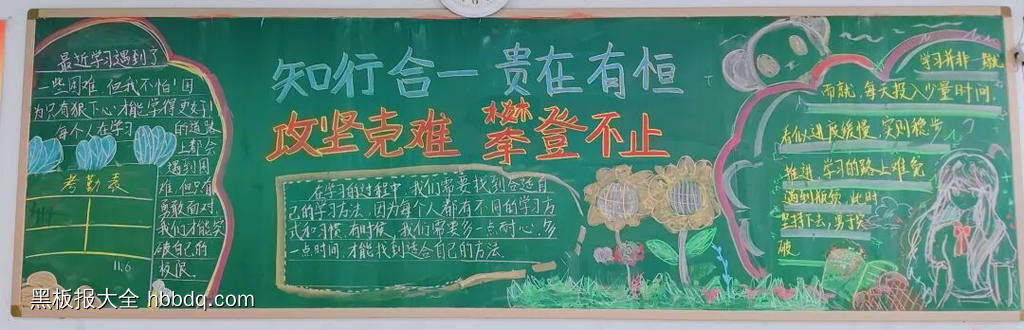 知行合一 贵在有恒
攻坚克难 攀登不止
最近学习遇到了
一些困难,但我不怕!因
为只有狠下心才能学得更好!
每个人在学习的道路
上都会
遇到困
难,但只有
勇敢面对,
我们才能突
破自己的
极限.
考勤表
11.6
在学习的过程中,我们需要找到合适自
己的学习方法,因为每个人都有不同的学习方
式和习惯,有时候,我们需要多一点耐心,多
一点时间,才能找到适合自己的方法.
学习并非一蹴
而就,每天投入少量时间,
看似进度缓慢,实则稳步
推进,学习的路上难免
遇到瓶颈,此时
坚持下去,勇于突
破
黑板报大全 hbbdq.com